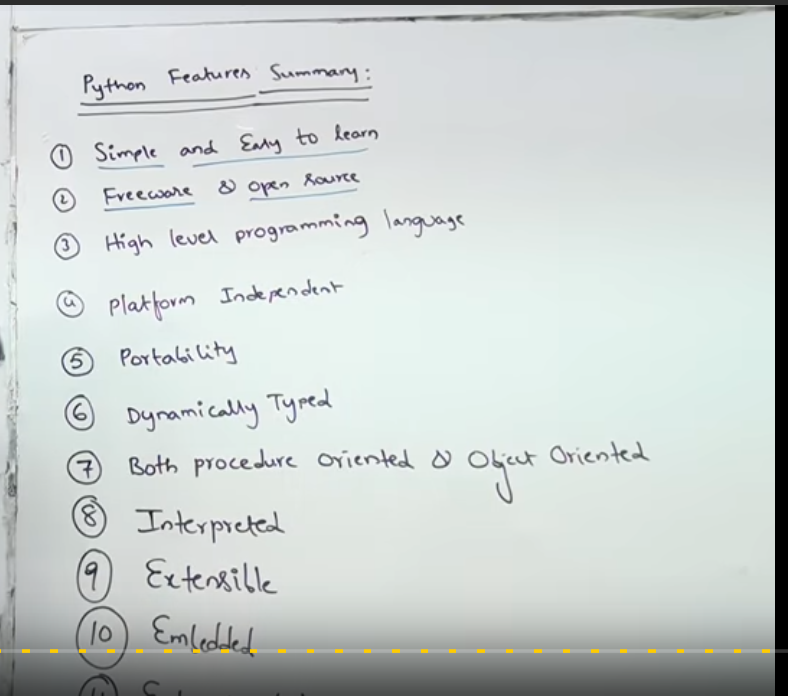 Python Features Summary:
① Simple and Easy to learn
② Freeware & open source
③ High level programming language
④ Platform Independent
⑤ Portability
⑥ Dynamically Typed
⑦ Both procedure oriented & Object Oriented
⑧ Interpreted
⑨ Extensible
⑩ Embedded